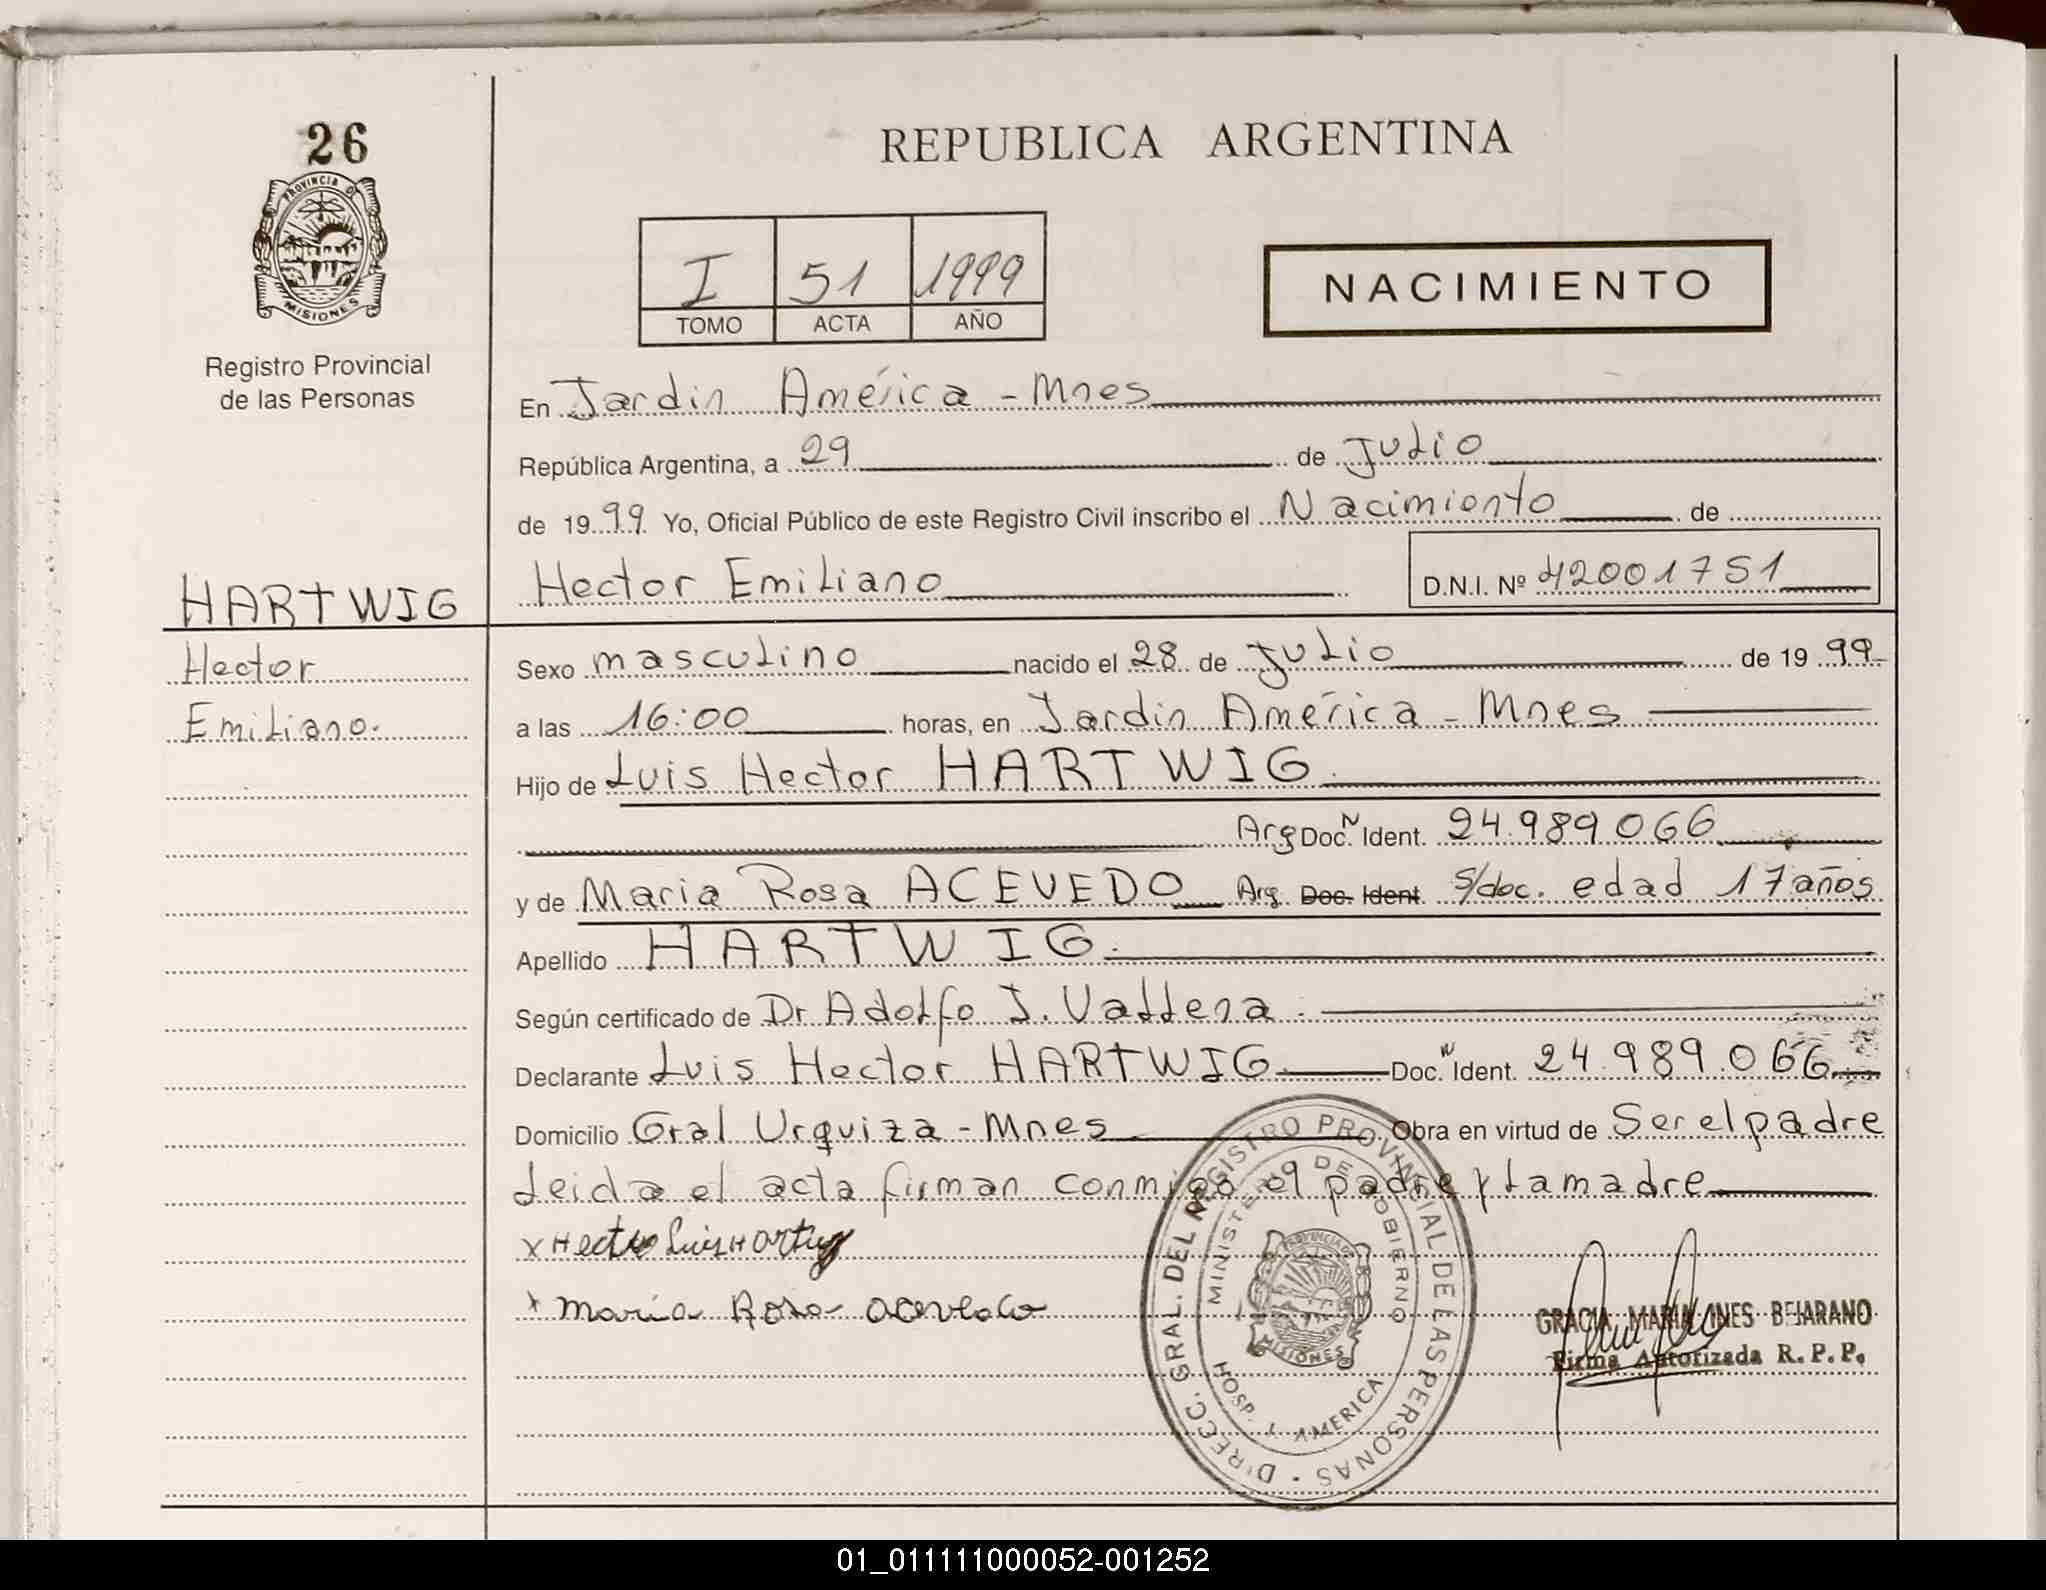 26
PROVINCIA DE
MISIONES
Registro Provincial
de las Personas
REPUBLICA ARGENTINA
I 51 1999
TOMO ACTA AÑO
NACIMIENTO
En Jardin América - Mnes
República Argentina, a 29 de Julio
de 1999 Yo, Oficial Público de este Registro Civil inscribo el Nacimiento de
HARTWIG
Hector
Emiliano.
Hector Emiliano D.N.I. Nº 42001751
Sexo masculino nacido el 28 de Julio de 1999
a las 16:00 horas, en Jardin América - Mnes
Hijo de Luis Hector HARTWIG
Arg Doc. N Ident. 24.989.066
y de Maria Rosa ACEVEDO Arg. Doc. Ident. s/doc. edad 17 años
Apellido HARTWIG.
Según certificado de Dr Adolfo J.
Declarante Luis Hector HARTWIG Doc. N Ident. 24.989.066
Domicilio Gral Urquiza - Mnes Obra en virtud de Ser el padre
Leida el acta firman conmigo el padre y la madre
x Hector Luis Hartwig
x Maria Rosa Acevedo
DIRECC. GRAL. DEL REGISTRO PROVINCIAL DE LAS PERSONAS
MINISTERIO DE GOBIERNO
PROVINCIA DE
MISIONES
HOSP. J. AMERICA
GRACIA MARIA INES BEJARANO
Firma Autorizada R. P. P.
01_011111000052-001252